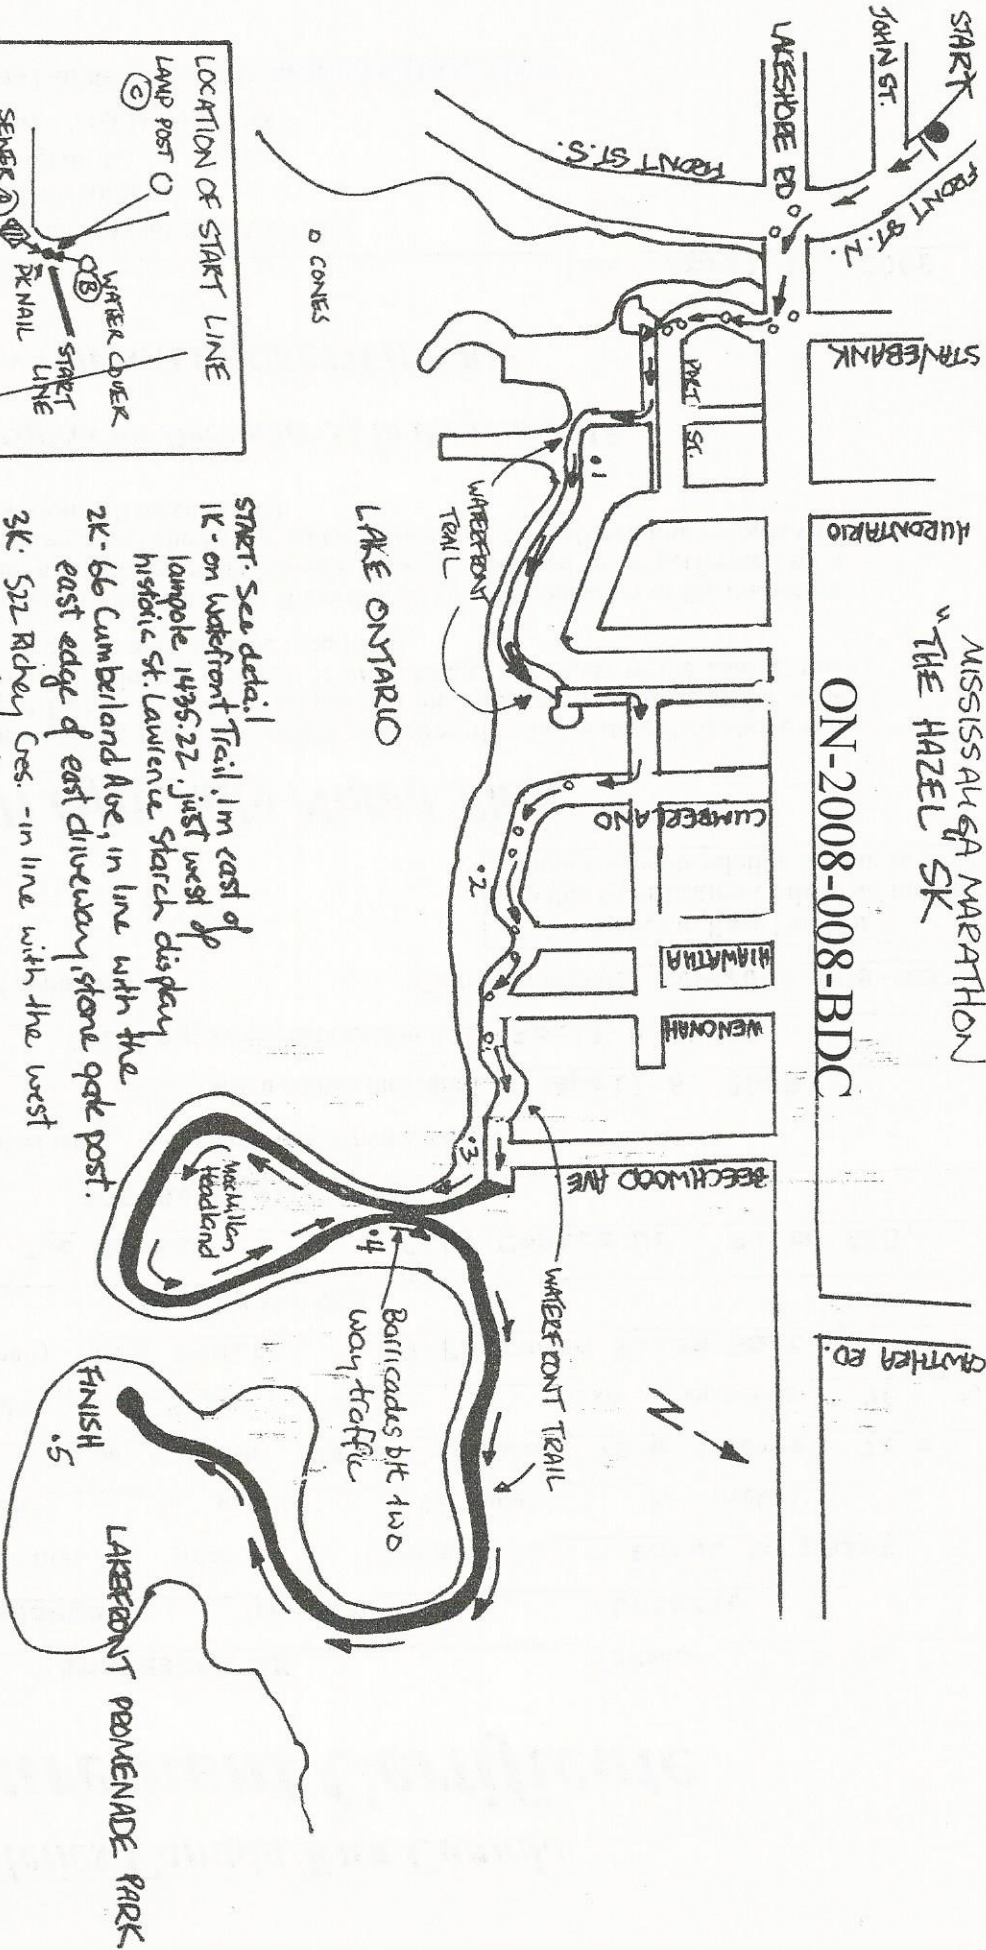 MISSISSAUGA MARATHON
"THE HAZEL" 5K
ON-2008-008-BDC
START
JOHN ST.
LAKESHORE RD
FRONT ST. N.
FRONT ST. S.
STAVEBANK
HURONTARIO
PORT ST.
CUMBERLAND
HIAWATHA
WENONAH
BEECHWOOD AVE
CAWTHRA RD.
N
CONES
.1
WATERFRONT
TRAIL
LAKE ONTARIO
.2
.3
WATERFRONT TRAIL
MacMillan
Headland
.4
Barricades bt two
way traffic
FINISH
.5
LAKEFRONT PROMENADE PARK
LOCATION OF START LINE
LAMP POST
C
WATER COVER
B
START
LINE
PK NAIL
SEWER A
START. See detail
1K - on Waterfront Trail, 1m east of
lampole 1435.22, just west of
historic St. Lawrence Starch display
2K - 66 Cumberland Ave, in line with the
east edge of east driveway, stone gate post.
3K. 522 Richey Cres. - in line with the west